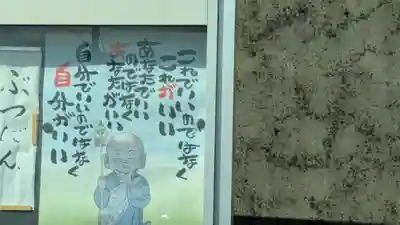 これでいいのではなく
これがいい
あなたでいい
のではなく
あなたがいい
自分でいいのではなく
自分がいい
ぶつだん